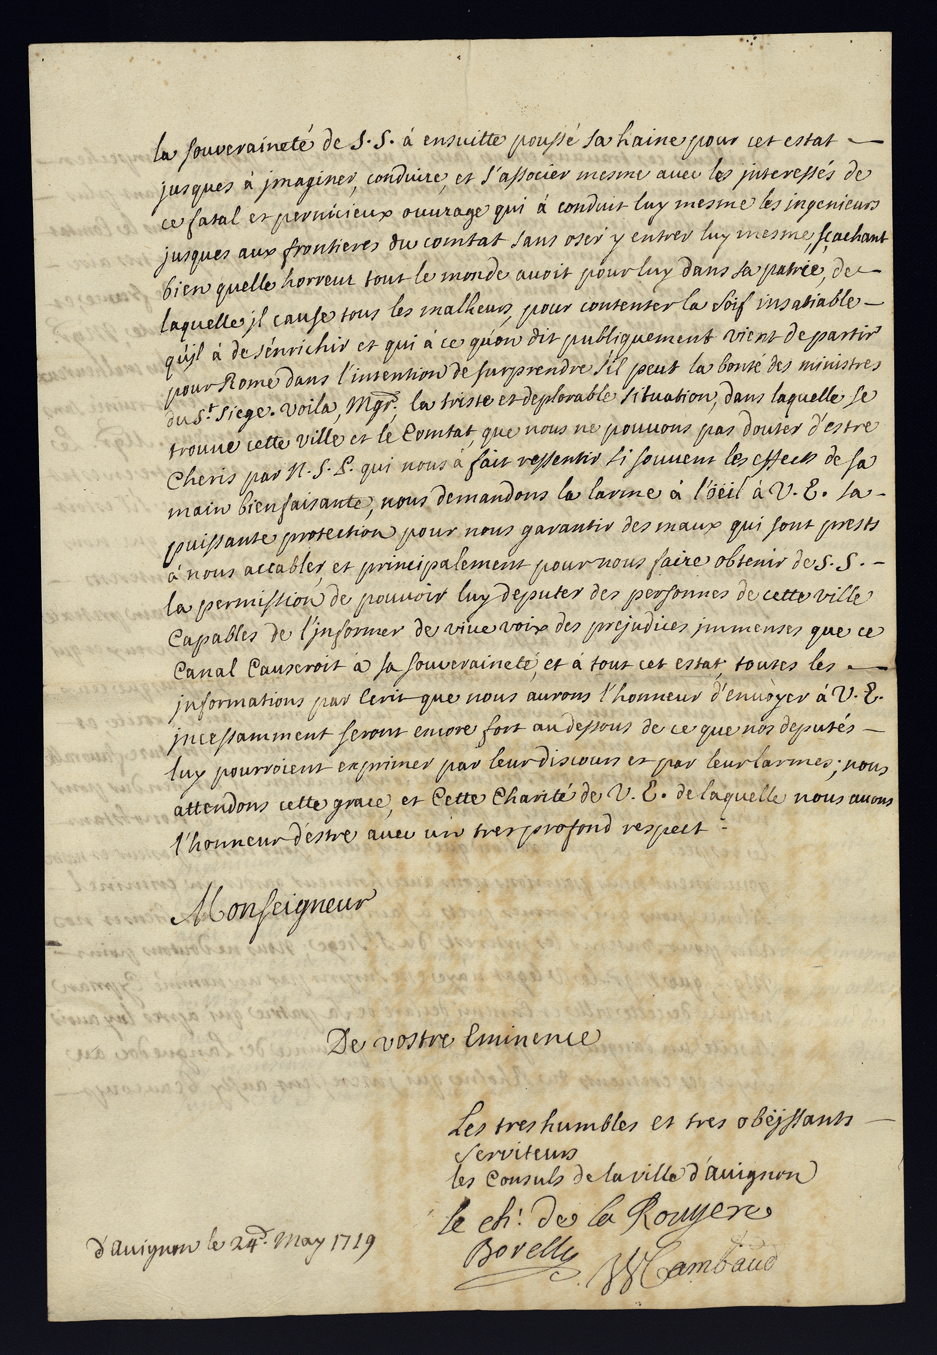 la souveraineté de S. S. à ensuitte poussé sa haine pour cet estat —
jusques à jmaginer, conduire, et s'associer mesme avec les jnteressés de
ce fatal et pernicieux ouvrage qui à conduit luy mesme les ingenieurs
jusques aux frontieres du comtat sans oser y entrer luy mesme, sçachant
bien quelle horreur tout le monde avoit pour luy dans sa patrie, de —
laquelle jl cause tous les malheurs, pour contenter la soif insatiable —
qu'jl à de s'énrichir et qui à ce qu'on dit publiquement vient de partir
pour Rome dans l'intention de surprendre s'il peut la bonté des ministres
du St. Siege. Voila, Mgr., la triste et deplorable situation, dans laquelle se
trouve cette ville et le Comtat, que nous ne pouvons pas douter d'estre
Cheris par N. S. P. qui nous à fait ressentir si souvent les effects de sa
main bienfaisante, nous demandons la larme à l'öeil à V. E. sa —
puissante protection pour nous garantir des maux qui sont prests
à nous accabler, et principalement pour nous faire obtenir de S. S. —
la permission de pouvoir luy deputer des personnes de cette ville
Capables de l'jnformer de vive voix des prejudices jmmenses que ce
Canal Causeroit à sa souveraineté, et à tout cet estat, toutes les —
jnformations par Ecrit que nous aurons l'honneur d'envoyer à V. E.
jncessamment seront encore fort au dessous de ce que nos deputés —
luy pourroient exprimer par leur discours et par leur larmes; nous
attendons cette grace, et Cette Charité de V. E. de laquelle nous avons
l'honneur d'estre avec un tres profond respect
Monseigneur
De vostre Eminence
Les tres humbles et tres obëjssants —
serviteurs
les Consuls de la ville d'avignon
le ch.r de la Rouyere
Borelly
Cambaud
d'avignon le 24.e May 1719